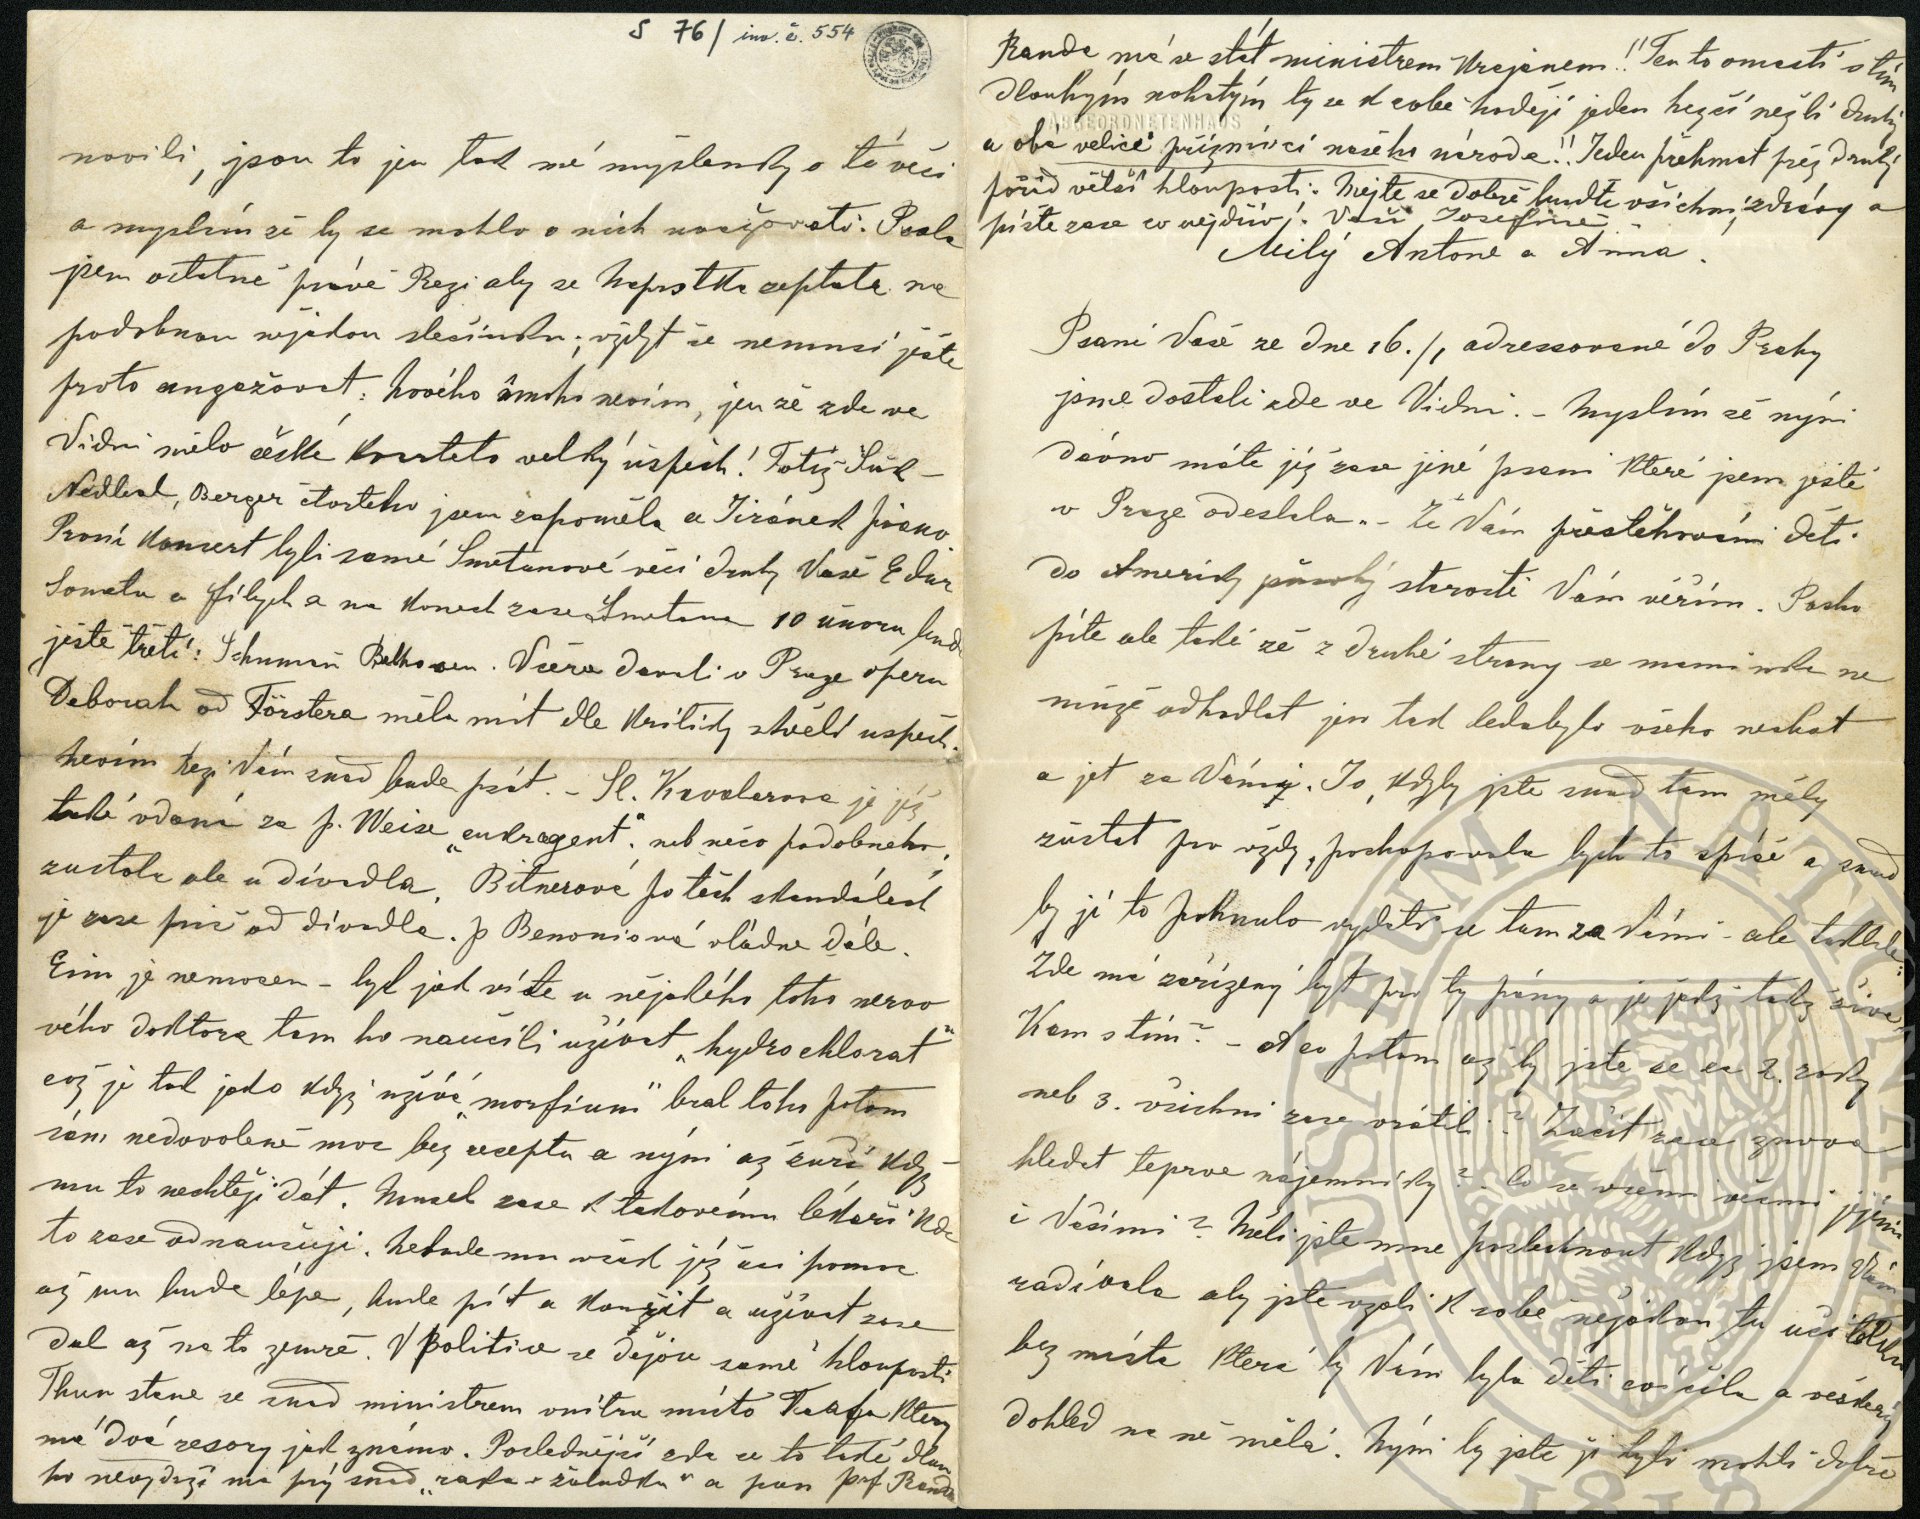 S 76/ inv. č. 554
novili, jsou to jen tak mé myšlenky o té věci
a myslím že by se mohlo o nich uvažovati. Psala
jsem ostatně právě Rezi aby se Naprstka zeptala na
podobnou nějakou slečinku; vždyt se nemusí ješte
proto angažovat. Nového mnoho nevím, jen že zde ve
Vídni mělo české kvarteto velký úspěch! Totiž Suk –
Nedbal, Berger čtvrteho jsem zapoměla a Jiránek piano
První koncert byli samé Smetanové věci druhy Vaše E dur
Sonatu a Fibych a na konec zase Smetana 10 unoru bude
ještě třetí: Schuman Bethoven. Včera davali v Praze operu
Deborah od Förstera měla mít dle kritiky skvělí uspěch.
Nevím Rezi Vám snad bude psát. – Sl. Kavalarova je již
také vdaná za p. Weise „cukragent“. neb něco podobneho,
zustala ale u dívadla. Bitnerová po těch skandálech
je zase prič od dívadla. p Benoniová vládne dále.
Evin je nemocen – byl jak víte u nějakého toho nervo
vého doktora tam ho naučili užívat „hydrochlorat“
což je tak jako když užívá „morfium“ bral toho potom
sám nedovoleně moc bez receptu a nýni až zuři když
mu to nechtěji dát. Musel zase k takovému lékaři kde
to zase odnaučuji. Nebude mu však již ani pomoc
až mu bude lépe, bude pít a kouřit a užívat zase
dal až na to zemře. V Politice se dějou samé hlouposti
Thun stane se snad ministrem vnitra místo Kaafa ktery
má dvá resory jak známo. Poslednější zda se to také dlou
ho nevydrží má prý snad „raka v žaludku“ a pan prof Randa
Randa má se stát ministrem Krajanem!! Ten to omastí s tím
dlouhým nohatým ty se k sobě hoději jeden hezčí nežli druhy
ABGEORDNETENHAUS
a obá velicí příznivci našeho národa!! Jeden přehmat přez druhý
pořád větší hlouposti. Mějte se dobře buďte všichni zdrávy a
pište zase co nejdřív! Vaší Josefine
Milý Antone a Anna.
Psaní Vaše ze dne 16./1 adressované do Prahy
jsme dostali zde ve Vídni. – Myslím že nýni
dávno máte již zase jiné psani které jsem ještě
v Praze odeslala. – Že Vám přestěhováni dětí
do Ameriky působý starosti Vám věřím. Pocho
píte ale také že z druhé strany se maminka ne
může odhodlat jen tak ledabylo všeho nechat
a jet za Vámi. Jo, kdyby jste snad tam měly
zůstat pro vždy, pochopovala bych to spíše a snad
by jí to pohnulo vydati se tam za Vámi – ale takhle:
Zde má zařízený byt pro ty pány a je jejích taky živa,
Kam s tím? – A co potom až by jste se za 2. roky
neb 3. všichni zase vrátili? Začít zase znova
hledat teprve nájemníky? – Co se všemi věcmi jejími
i Vašimi? Měli jste mne poslechnout když jsem Vám
radívala aby jste vzali k sobě nějakou tu učitelku
bez místa která by Vám byla děti cvičila a veškerý
dohled na ně měla. Nýni by jste ji byli mohli dobře
MUSAEUM ANTONII
1818